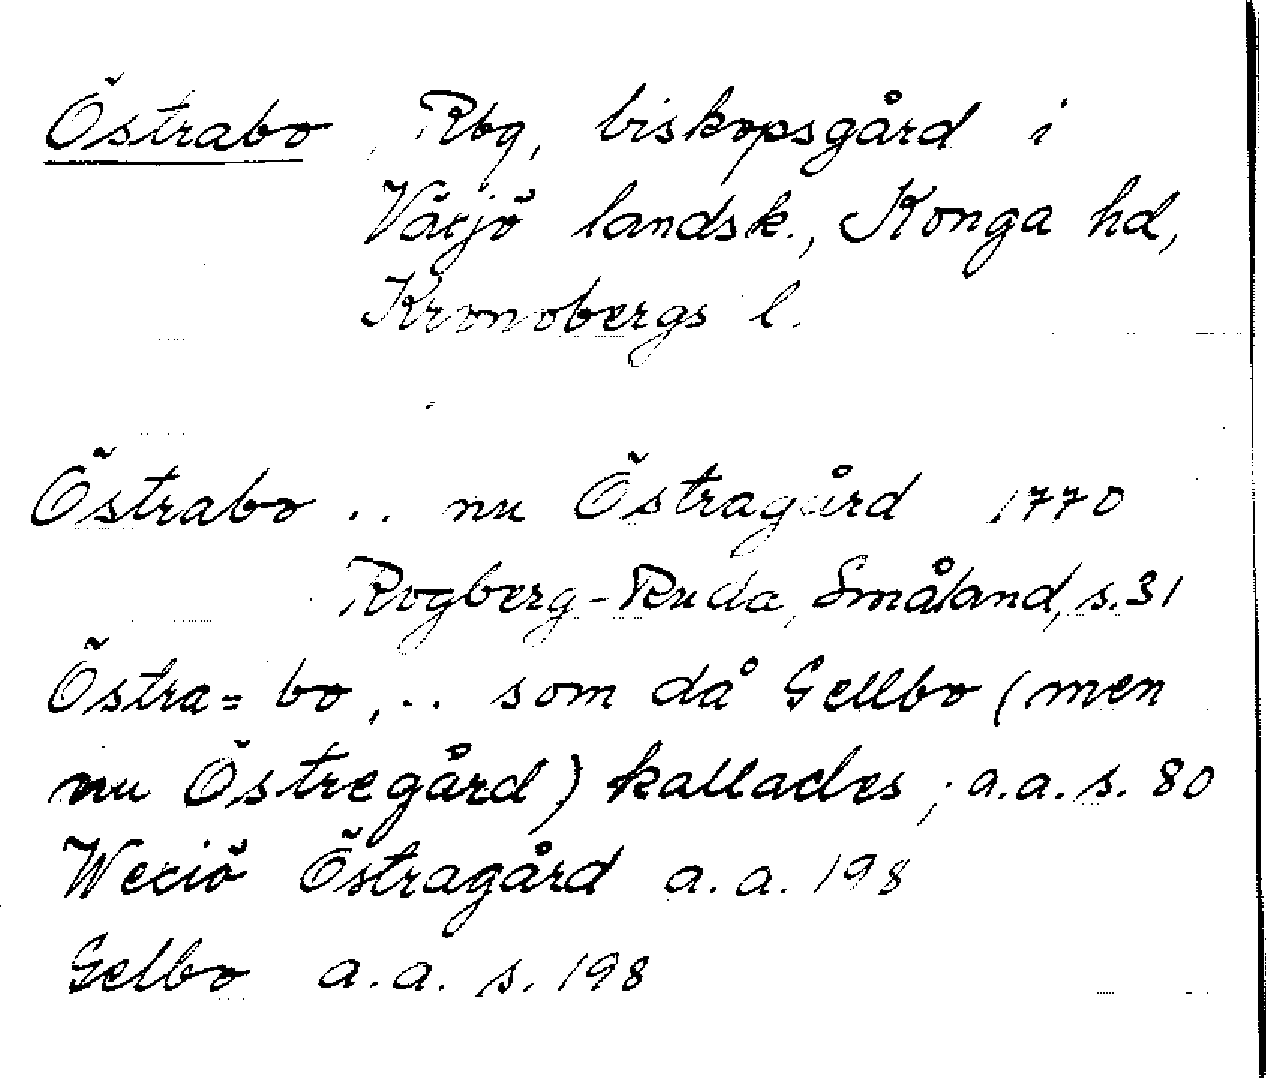 Östrabo, Rbg, biskopsgård i
Växjö landsk., Konga hd,
Kronobergs l.
Östrabo .. nu Östragård 1770
Rogberg-Ruda, Småland, s. 31
Östra= bo, .. som då Gellbo (men
nu Östregård) kallades; a.a. s. 80
Wexiö Östragård a.a. 198
Gelbo a.a. s. 198